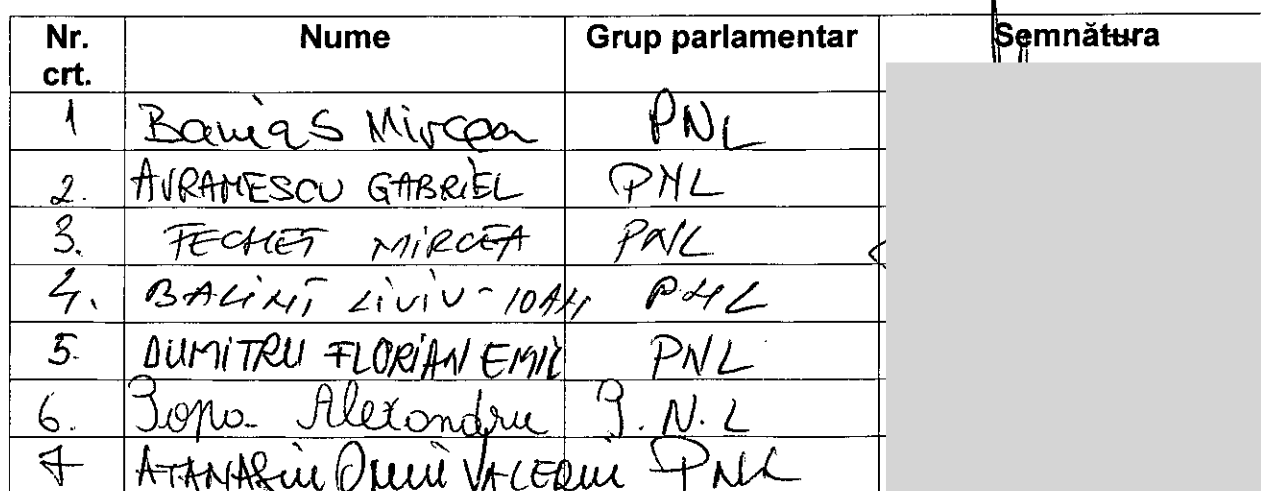 Nr. crt. Nume Grup parlamentar Semnătura
1 Banias Mircea PNL
2. AVRAMESCU GABRIEL PNL
3. FECHET MIRCEA PNL
4. BALINT LIVIU-IOAN PNL
5. DUMITRU FLORIAN EMIL PNL
6. Popa Alexandru P.N.L
7 ATANASIU VALERIU PNL